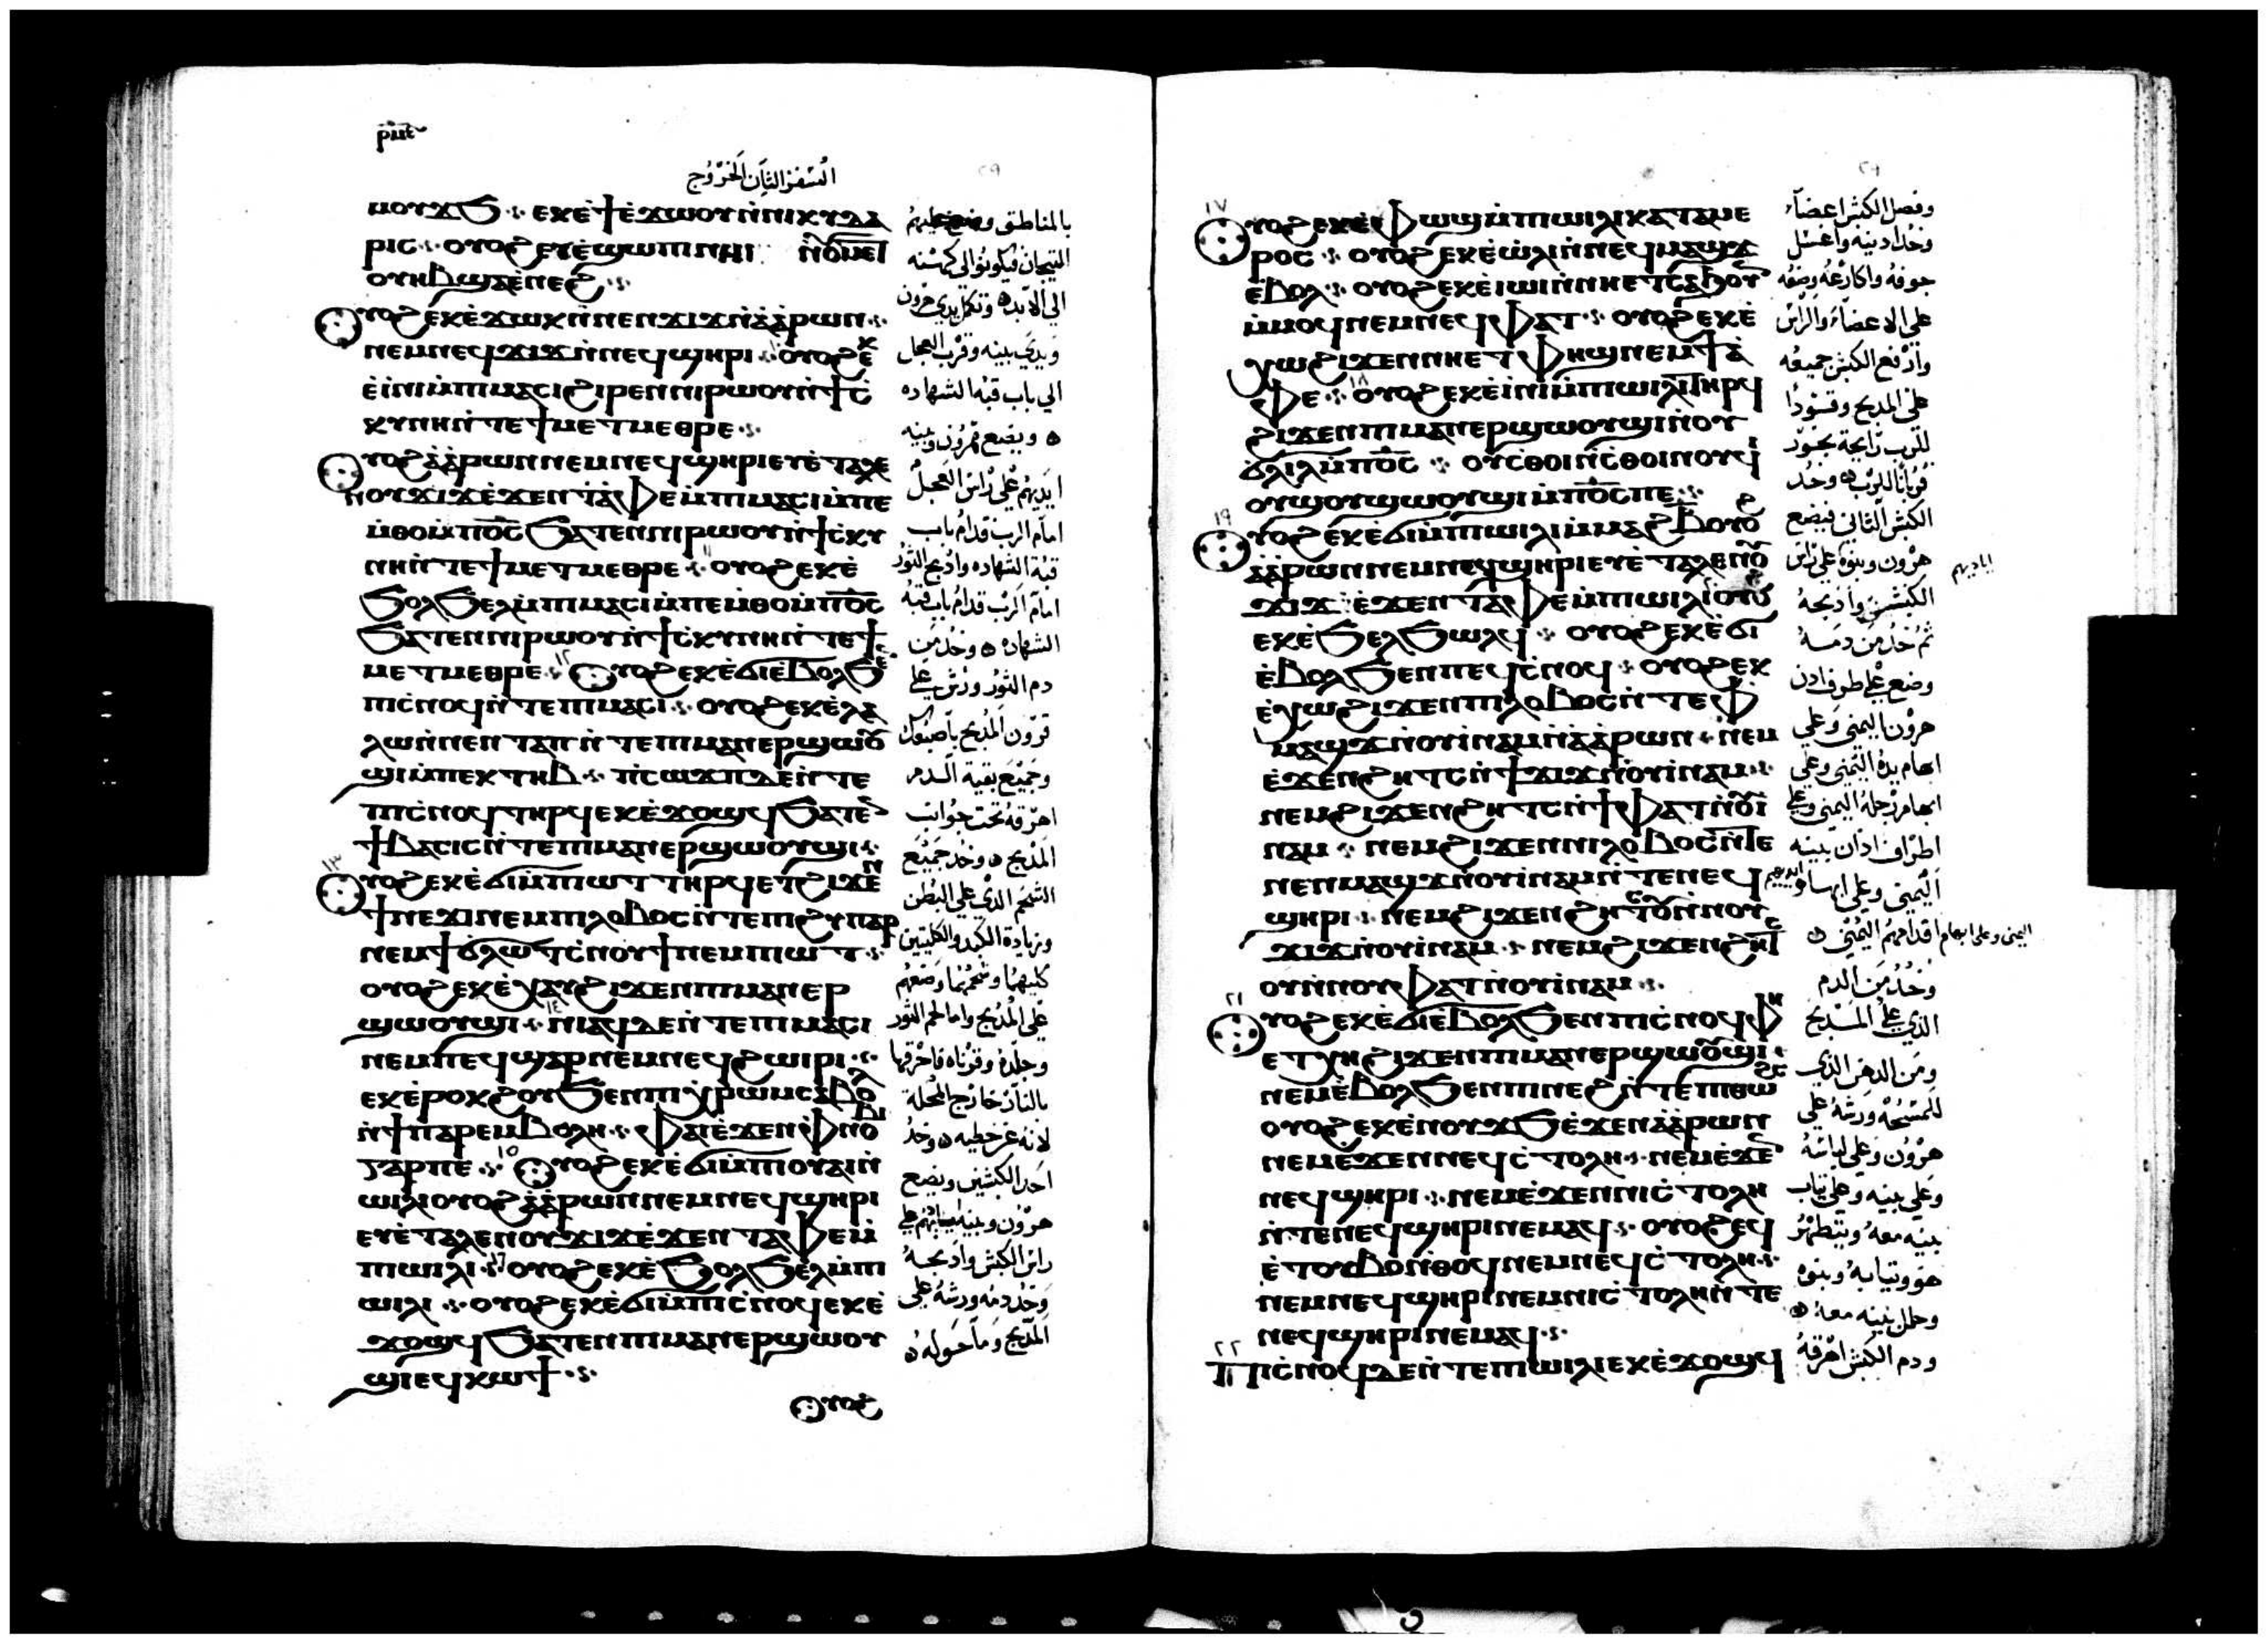 السفر الثاني الخروج
ⲙⲟⲩϫϧ ⁘ ⲉⲕⲉ̀ϯⲉ̀ϫⲱⲟⲩⲛ̀ⲛⲓⲕⲩⲇⲁ
ⲣⲓⲥ ⁘ ⲟⲩⲟϩ ⲉⲩⲉ̀ϣⲱⲡⲓⲛⲏⲓ
ⲟⲩⲏⲃϣⲁⲉ̀ⲛⲉϩ ⁘
ⲟⲩⲟϩ ⲉⲕⲉ̀ϫⲱⲕⲛ̀ⲛⲉⲛϫⲓϫⲛ̀ⲁ̀ⲁ̀ⲣⲱⲛ ⁘
ⲛⲉⲙⲛⲉϥϫⲓϫⲛ̀ⲛⲉϥϣⲏⲣⲓ ⁘ ١٠ ⲟⲩⲟϩ ⲉⲕ
ⲉ̀ⲓ̀ⲛⲓⲙ̀ⲡⲓⲙⲁⲥⲓϩⲓⲣⲉⲛⲛⲓⲣⲱⲟⲩⲛ̀ϯⲥ̀
ⲕⲩⲛⲏⲛ̀ⲧⲉϯⲙⲉⲧⲙⲉⲑⲣⲉ ⁘
ⲟⲩⲟϩ ⲁ̀ⲁ̀ⲣⲱⲛⲛⲉⲙⲛⲉϥϣⲏⲣⲓⲉⲩⲉ̀ⲧⲁⲗⲉ
ⲛⲟⲩϫⲓϫⲉ̀ϫⲉⲛⲧⲁ̀ⲫⲉⲙ̀ⲡⲓⲙⲁⲥⲓⲙ̀ⲡⲉ
ⲙ̀ⲑⲟⲙ̀ⲡⲟ̅ⲥ̅ϧⲁⲧⲉⲛⲛⲓⲣⲱⲟⲩⲛ̀ϯⲥ̀ⲕⲩ
ⲛⲏⲛ̀ⲧⲉϯⲙⲉⲧⲙⲉⲑⲣⲉ ⁘ ١١ ⲟⲩⲟϩ ⲉⲕⲉ̀
ϧⲟⲗϧⲉⲗⲙ̀ⲡⲓⲙⲁⲥⲓⲙ̀ⲡⲉⲙ̀ⲑⲟⲙ̀ⲡⲟ̅ⲥ̅
ϧⲁⲧⲉⲛⲛⲓⲣⲱⲟⲩⲛ̀ϯⲥ̀ⲕⲩⲛⲏⲛ̀ⲧⲉϯ
ⲙⲉⲧⲙⲉⲑⲣⲉ ⁘ ١٢ ⲟⲩⲟϩ ⲉⲕⲉ̀ϭⲓⲉ̀ⲃⲟⲗϧⲉ
ⲡⲓⲥ̀ⲛⲟϥⲛ̀ⲧⲉⲡⲓⲙⲁⲥⲓ ⁘ ⲟⲩⲟϩ ⲉⲕⲉ̀ⲗⲁ
ⲗⲱⲛ̀ⲛⲉⲛⲧⲁⲡⲛ̀ⲧⲉⲡⲓⲙⲁⲛⲉⲣϣⲱⲟⲩ
ϣⲓⲙ̀ⲡⲉⲕⲧⲏⲃ ⁘ ⲡ̀ⲥⲱϫⲡⲇⲉⲛ̀ⲧⲉ
ⲡⲓⲥ̀ⲛⲟϥⲧⲏⲣϥⲉⲕⲉ̀ϫⲟϣϥϧⲁⲧⲉⲛ
ϯⲃⲁⲥⲓⲥⲛ̀ⲧⲉⲡⲓⲙⲁⲛⲉⲣϣⲱⲟⲩϣⲓ ⁘
١٣ ⲟⲩⲟϩ ⲉⲕⲉ̀ϭⲓⲙ̀ⲡⲓⲱⲧⲧⲏⲣϥⲉⲧϩⲓϫⲉⲛ
ϯⲛⲉϫⲓⲛⲉⲙⲡⲓⲗⲟⲃⲟⲥⲛ̀ⲧⲉⲡⲓϩⲩⲡⲁⲣ
ⲛⲉⲙϯϭⲗⲱⲧⲥ̀ⲛⲟⲩϯⲛⲉⲙⲡⲓⲱⲧ ⁘
ⲟⲩⲟϩ ⲉⲕⲉ̀ⲭⲁⲩϩⲓϫⲉⲛⲡⲓⲙⲁⲛⲉⲣ
ϣⲱⲟⲩϣⲓ ⁘ ١٤ ⲛⲓⲁϥⲇⲉⲛ̀ⲧⲉⲡⲓⲙⲁⲥⲓ
ⲛⲉⲙⲡⲉϥϣⲁⲣⲛⲉⲙⲛⲉϥϩⲱⲓⲣⲓ ⁘
ⲉⲕⲉ̀ⲣⲟⲕϩⲟⲩϧⲉⲛⲡⲓⲭ̀ⲣⲱⲙⲥⲁⲃⲟⲗ
ⲛ̀ϯⲡⲁⲣⲉⲙⲃⲟⲗⲏ ⁘ ⲫⲁⲓⲉ̀ϫⲉⲛⲫⲛⲟⲃⲓ
ⲅⲁⲣⲡⲉ ⁘ ١٥ ⲟⲩⲟϩ ⲉⲕⲉ̀ϭⲓⲙ̀ⲡⲓⲟⲩⲁⲓⲛ̀
ⲱⲓⲗⲓⲟⲩⲟϩ ⲁ̀ⲁ̀ⲣⲱⲛⲛⲉⲙⲛⲉϥϣⲏⲣⲓ
ⲉⲩⲉ̀ⲧⲁⲗⲉⲛⲟⲩϫⲓϫⲉ̀ϫⲉⲛⲧⲁⲫⲉⲙ̀
ⲡⲓⲱⲓⲗⲓ ⁘ ١٦ ⲟⲩⲟϩ ⲉⲕⲉ̀ϧⲟⲗϧⲉⲗⲙ̀ⲡⲓ
ⲱⲓⲗⲓ ⁘ ⲟⲩⲟϩ ⲉⲕⲉ̀ϭⲓⲙ̀ⲡⲓⲥ̀ⲛⲟϥⲉⲕⲉ̀
ϫⲟϣϥϧⲁⲧⲉⲛⲡⲓⲙⲁⲛⲉⲣϣⲱⲟⲩ
ϣⲓⲉϥⲕⲱϯ ⁘
ⲟⲩⲟϩ
بالمناطق وضع عليهم
التيجان فيكونوا لي كهنه
الي الابد ه وتكمل يدي هرون
ويدي بنيه وقرب العجل
الي باب قبة الشهاده
ه ويضع هرون وبنيه
ايديهم علي راس العجل
امام الرب قدام باب
قبة الشهاده واذبح الثور
امام الرب قدام باب قبة
الشهاده ه وخذ من
دم الثور ورش علي
قرون المذبح باصبعك
وجميع بقية الدم
اهرقه تحت جوانب
المذبح ه وخذ جميع
الشحم الذي علي البطن
وزيادة الكبد والكليتين
كليهما وشحمهما وضعهم
علي المذبح واما لحم الثور
وجلده وفرثاه فاحرقها
بالنار خارج المحلة
لانه عن خطيه ه وخذ
احد الكبشين ويضع
هرون وبنيه ايديهم علي
راس الكبش واذبحه
وخذ دمه ورشه علي
المذبح وما حوله ه
١٧ ⲟⲩⲟϩ ⲉⲕⲉ̀ⲫⲱϣⲙ̀ⲡⲓⲱⲓⲗⲓⲕⲁⲧⲁⲙⲉ
ⲣⲟⲥ ⁘ ⲟⲩⲟϩ ⲉⲕⲉ̀ⲱ̀ⲗⲓⲛ̀ⲛⲉϥⲙⲁϣϫ
ⲉ̀ⲃⲟⲗ ⁘ ⲟⲩⲟϩ ⲉⲕⲉ̀ⲓⲱⲓⲛ̀ⲛⲏⲉⲧⲥⲁϧⲟⲩⲛ
ⲙ̀ⲙⲟϥⲛⲉⲙⲛⲉϥⲫⲁⲧ ⁘ ⲟⲩⲟϩ ⲉⲕⲉ̀
ⲭⲱϩⲓϫⲉⲛⲛⲏⲉⲧⲫⲏϣⲛⲉⲙϯⲁ̀
ⲫⲉ ⁘ ١٨ ⲟⲩⲟϩ ⲉⲕⲉ̀ⲓ̀ⲛⲓⲙ̀ⲡⲓⲱⲓⲗⲓⲧⲏⲣϥ
ϩⲓϫⲉⲛⲡⲓⲙⲁⲛⲉⲣϣⲱⲟⲩϣⲓⲛ̀ⲟⲩ
ϭⲗⲓⲗⲙ̀ⲡⲟ̅ⲥ̅ ⁘ ⲟⲩⲥ̀ⲑⲟⲓⲛ̀ⲥ̀ⲑⲟⲓⲛⲟⲩϥⲓ
ⲟⲩϣⲟⲩϣⲱⲟⲩϣⲓⲙ̀ⲡⲟ̅ⲥ̅ⲡⲉ ⁘
١٩ ⲟⲩⲟϩ ⲉⲕⲉ̀ϭⲓⲙ̀ⲡⲓⲱⲓⲗⲓⲙ̀ⲙⲁϩⲃⲟⲩⲟϩ
ⲁ̀ⲁ̀ⲣⲱⲛⲛⲉⲙⲛⲉϥϣⲏⲣⲓⲉⲩⲉ̀ⲧⲁⲗⲉⲛⲟⲩ
ϫⲓϫⲉ̀ϫⲉⲛⲧⲁⲫⲉⲙ̀ⲡⲓⲱⲓⲗⲓⲟⲩⲟϩ
ⲉⲕⲉ̀ϧⲉⲗϧⲱⲗϥ ⁘ ⲟⲩⲟϩ ⲉⲕⲉ̀ϭⲓ
ⲉ̀ⲃⲟⲗϧⲉⲛⲡⲉϥⲥ̀ⲛⲟϥ ⁘ ⲟⲩⲟϩ ⲉⲕ
ⲉ̀ⲭⲱϩⲓϫⲉⲛⲡⲓⲗⲟⲃⲟⲥⲛ̀ⲧⲉⲫ
ⲙⲁϣϫⲛ̀ⲟⲩⲓ̀ⲛⲁⲙⲛ̀ⲁ̀ⲁ̀ⲣⲱⲛ ⁘ ⲛⲉⲙ
ⲉ̀ϫⲉⲛϩⲏⲧⲥⲛ̀ϯϫⲓϫⲛ̀ⲟⲩⲓ̀ⲛⲁⲙ ⁘
ⲛⲉⲙϩⲓϫⲉⲛϩⲏⲧⲥⲛ̀ϯⲫⲁⲧⲛ̀ⲟⲩⲓ̀
ⲛⲁⲙ ⁘ ⲛⲉⲙϩⲓϫⲉⲛⲛⲓⲗⲟⲃⲟⲥⲛ̀ⲧⲉ
ⲛⲉⲛⲙⲁϣϫⲛ̀ⲟⲩⲓ̀ⲛⲁⲙⲛ̀ⲧⲉⲛⲉϥ
ϣⲏⲣⲓ ⁘ ⲛⲉⲙϩⲓϫⲉⲛϩⲏⲧⲟⲩⲛ̀ⲛⲟⲩ
ϫⲓϫⲛ̀ⲟⲩⲓ̀ⲛⲁⲙ ⁘ ⲛⲉⲙϩⲓϫⲉⲛϩⲏⲧ
ⲟⲩⲛ̀ⲛⲟⲩⲫⲁⲧⲛ̀ⲟⲩⲓ̀ⲛⲁⲙ ⁘
٢١ ⲟⲩⲟϩ ⲉⲕⲉ̀ϭⲓⲉ̀ⲃⲟⲗϧⲉⲛⲡⲓⲥ̀ⲛⲟϥⲫⲏ
ⲉⲧⲭⲏϩⲓϫⲉⲛⲡⲓⲙⲁⲛⲉⲣϣⲱⲟⲩϣⲓ ⁘
ⲛⲉⲙⲉ̀ⲃⲟⲗϧⲉⲛⲡⲓⲛⲉϩⲛ̀ⲧⲉⲡⲓⲑⲱϩⲥ
ⲟⲩⲟϩ ⲉⲕⲉ̀ⲛⲟⲩϫϧⲉ̀ϫⲉⲛⲁ̀ⲁ̀ⲣⲱⲛ
ⲛⲉⲙⲉ̀ϫⲉⲛⲛⲉϥⲥ̀ⲧⲟⲗⲏ ⁘ ⲛⲉⲙⲉ̀ϫⲉⲛ
ⲛⲉϥϣⲏⲣⲓ ⁘ ⲛⲉⲙⲉ̀ϫⲉⲛⲛⲓⲥ̀ⲧⲟⲗⲏ
ⲛ̀ⲧⲉⲛⲉϥϣⲏⲣⲓⲛⲉⲙⲁϥ ⁘ ⲟⲩⲟϩ ⲉϥ
ⲉ̀ⲧⲟⲩⲃⲟⲛ̀ⲑⲟϥⲛⲉⲙⲛⲉϥⲥ̀ⲧⲟⲗⲏ ⁘
ⲛⲉⲙⲛⲉϥϣⲏⲣⲓⲛⲉⲙⲛⲓⲥ̀ⲧⲟⲗⲏⲛ̀ⲧⲉ
ⲛⲉϥϣⲏⲣⲓⲛⲉⲙⲁϥ ⁘
٢٢ ⲡⲓⲥ̀ⲛⲟϥⲇⲉⲛ̀ⲧⲉⲡⲓⲱⲓⲗⲓⲉⲕⲉ̀ϫⲟϣϥ
وفصل الكبش اعضاء
وخذ اذنيه واغسل
جوفه واكارعه وضعه
علي الاعضاء والراس
وارفع الكبش جميعه
علي المذبح وقودا
للرب رايحة بخور
قربانا للرب ه وخذ
الكبش الثاني فيضع
هرون وبنوه علي راس
اياديهم
الكبش واذبحه
ثم خذ من دمه
وضع علي طرف اذن
هرون اليمني وعلي
ابهام يده اليمني وعلي
ابهام رجله اليمني وعلي
اطراف اذان بنيه
اليمني وعلي ابهام ايديهم
اليمني وعلي ابهام اقدامهم اليمني ه
وخذ من الدم
الذي علي المذبح
ومن الدهن الذي
للمسحه ورشه علي
هرون وعلي لباسه
وعلي بنيه وعلي ثياب
بنيه معه ويتطهر
هو وثيابه وبنوه
وحلل بنيه معه ه
ودم الكبش اهرقه